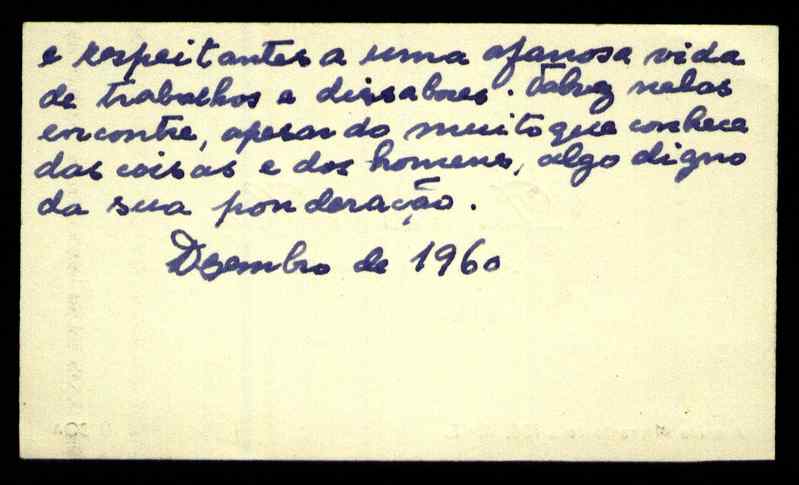 e respeitantes a uma afanosa vida
de trabalhos e dissabores. Talvez nelas
encontre, apesar do muito que conhece
das coisas e dos homens, algo digno
da sua ponderação.
Dezembro de 1960